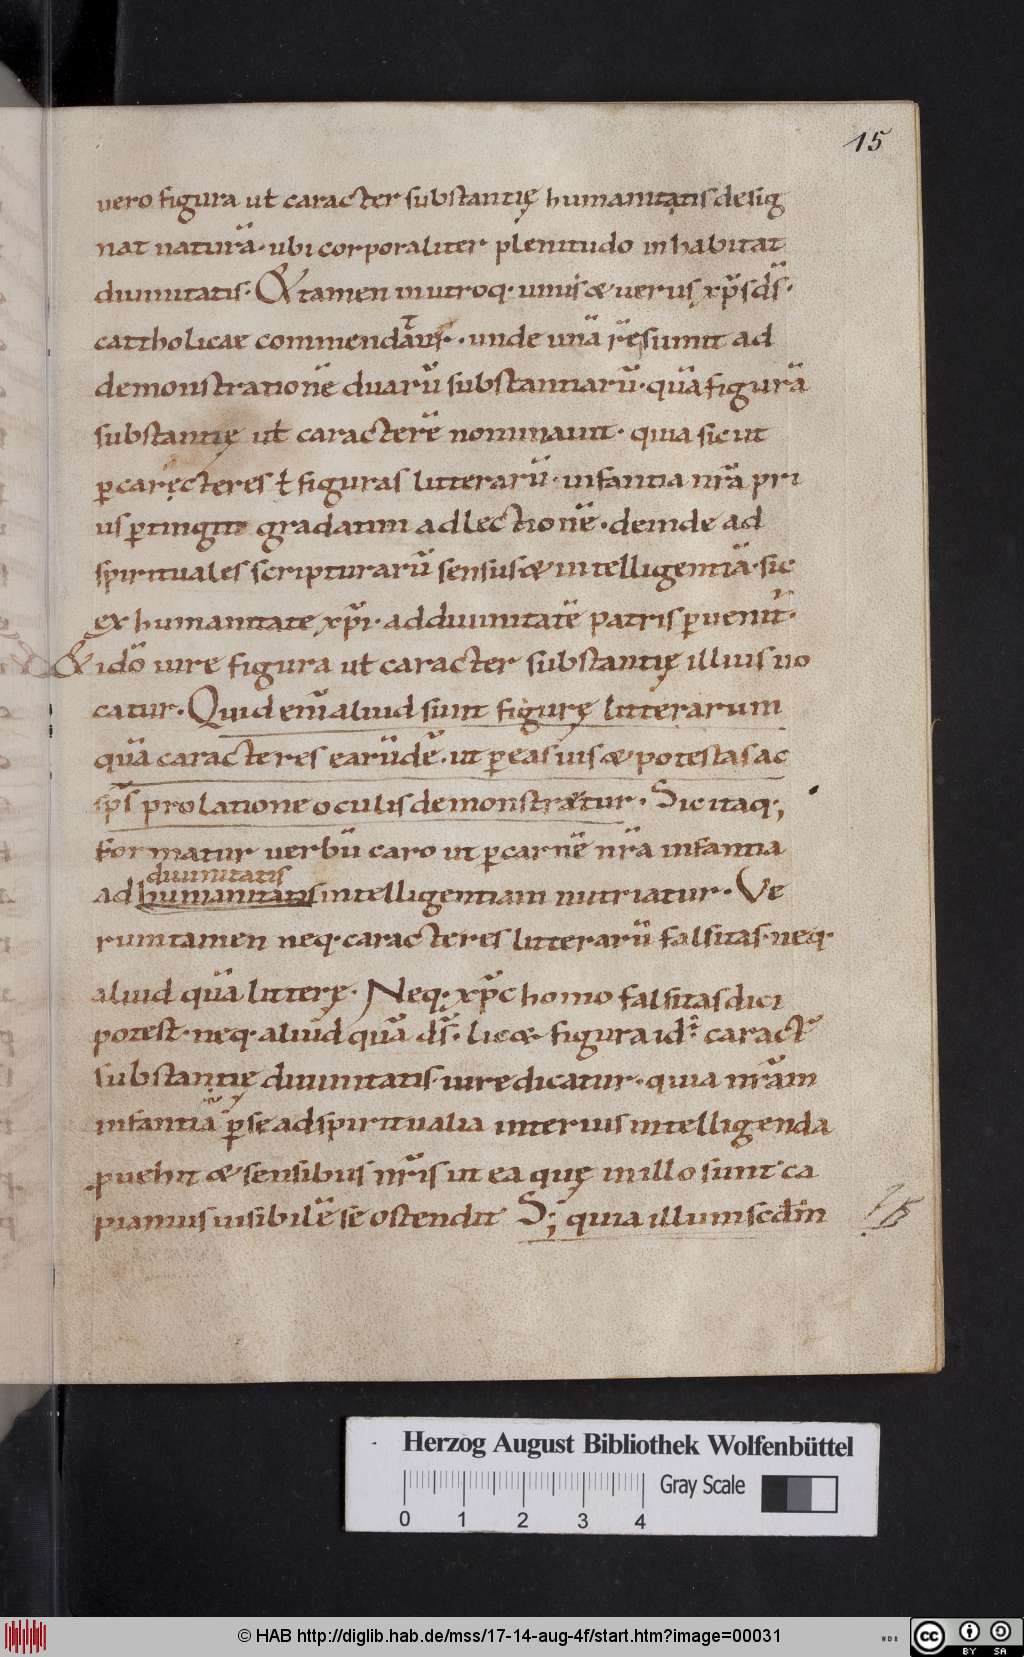 15
uero figura ut caracter substantię humanitatis desig
nat naturā· ubi corporaliter plenitudo inhabitat
diuinitatis· & tamen in utroq· unus & uerus xp̄s d̄s·
cattholicae commendatur· unde unā resumit ad
demonstrationē duarū substantiarū· quā figurā
substantię ut caracterē nominauit· quia sicut
p̱caręcteres ł figuras litterarū· infantia nr̄a pri
us p̱tingit gradatim ad lectionē· deinde ad
spirituales scripturarū sensus & intelligentiā· sic
ex humanitate xp̄i· ad diuinitatē patris p̱uenit·
& idō iure figura ut caracter substantię illius uo
catur· Quid enī aliud sunt figurę litterarum
quā caracteres earūdē· ut p̱ eas uis & potestas ac
sp̄s prolatione oculis demonstraetur· Sic itaq;
formatur uerbū caro ut p̱ carnē nr̄a infantia
diuinitatis
ad humanitatis intelligentiam nutriatur· Ve
rumtamen neq· caracteres litterarū falsitas· neq·
aliud quā litterę· Neq· xp̄c homo falsitas dici
potest· neq· aliud quā d̄s· lic& figura id· caract̄
substantię diuinitatis iure dicatur· quia nr̄am
infantiā p̱ se ad spiritualia interius intelligenda
p̱uehit & sensibus nr̄is ut ea quę in illo sunt ca
piamus uisibilē se ostendit S; quia illum scdm̄
Herzog August Bibliothek Wolfenbüttel
Gray Scale
0 1 2 3 4
© HAB http://diglib.hab.de/mss/17-14-aug-4f/start.htm?image=00031
WDB
cc BY SA